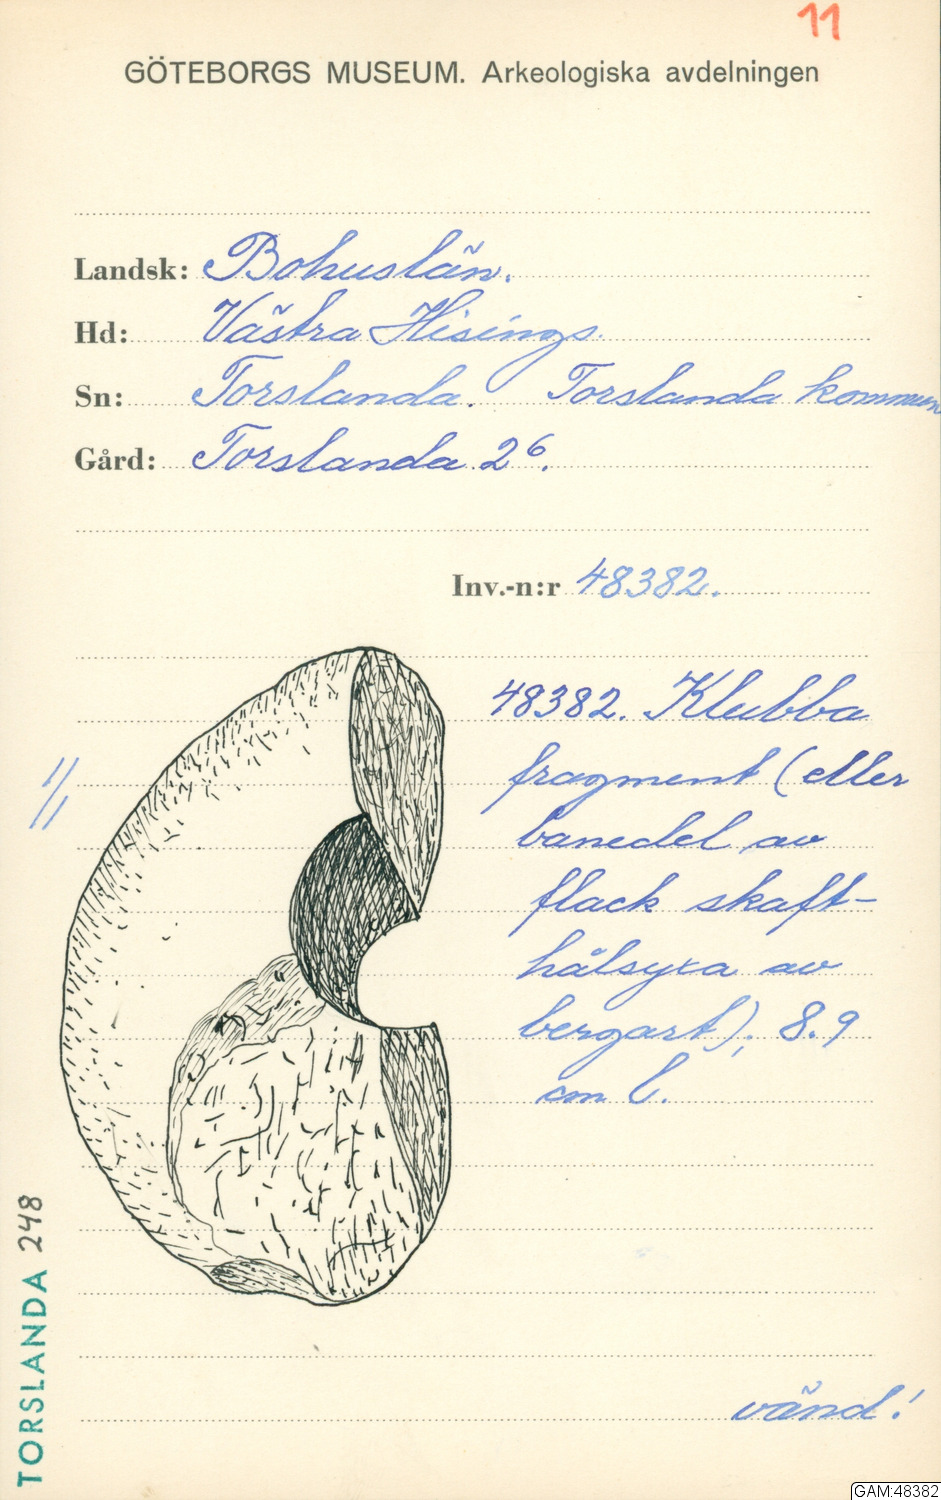 11
GÖTEBORGS MUSEUM. Arkeologiska avdelningen
Landsk: Bohuslän.
Hd: Västra Hisings.
Sn: Torslanda. Torslanda kommun
Gård: Torslanda 2⁶.
Inv.-n:r 48382.
48382. Klubba
fragment (eller
banedel av
flack skaft-
hålsyxa av
bergart), 8.9
cm l.
1/1
TORSLANDA 248
vänd!
GAM:48382